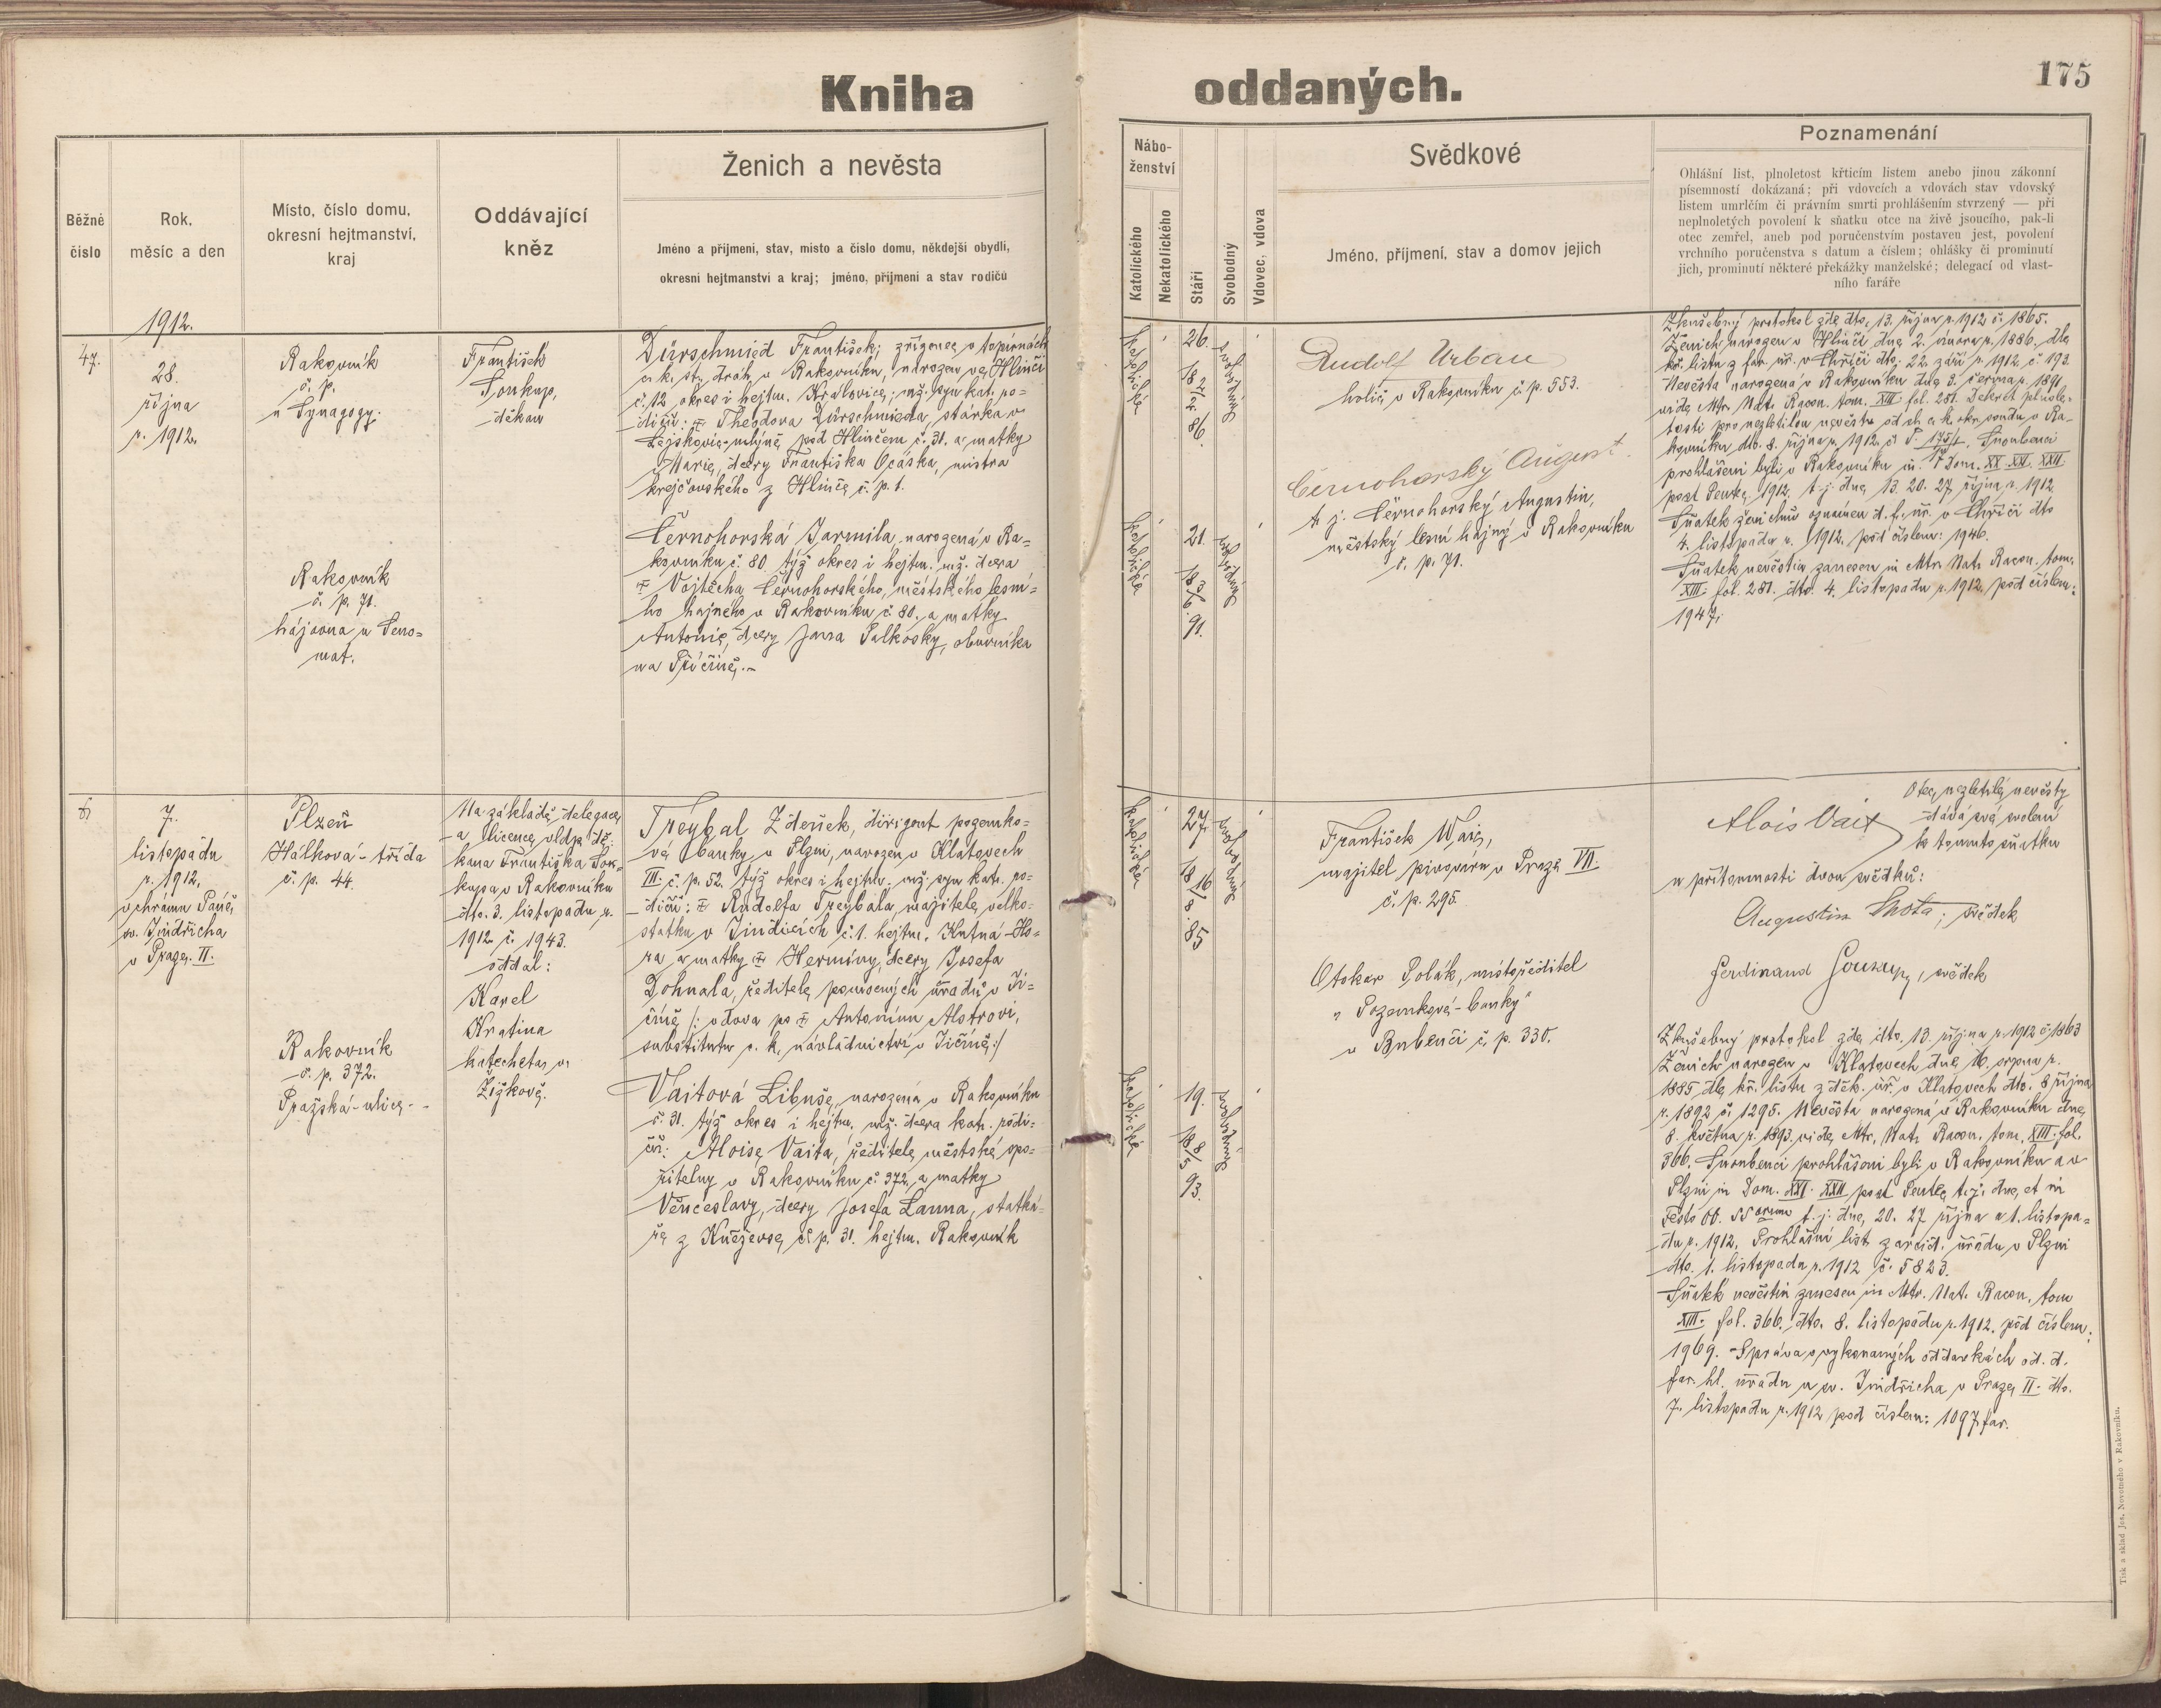 Kniha oddaných.
175
Běžné číslo
Rok, měsíc a den
Místo, číslo domu, okresní hejtmanství, kraj
Oddávající kněz
Ženich a nevěsta
Jméno a příjmení, stav, místo a číslo domu, někdejší obydlí,
okresní hejtmanství a kraj; jméno, příjmení a stav rodičů
Nábo-
ženství
Katolického
Nekatolického
Stáří
Svobodný
Vdovec, vdova
Svědkové
Jméno, příjmení, stav a domov jejich
Poznamenání
Ohlášní list, plnoletost křticím listem anebo jinou zákonní
písemností dokázaná; při vdovcích a vdovách stav vdovský
listem umrlčím či právním smrti prohlášením stvrzený — při
neplnoletých povolení k sňatku otce na živě jsoucího, pak-li
otec zemřel, aneb pod poručenstvím postaven jest, povolení
vrchního poručenstva s datum a číslem; ohlášky či prominutí
jich, prominutí některé překážky manželské; delegací od vlast-
ního faráře
1912.
47.
28.
října
r. 1912.
Rakovník
č. p.
u Synagogy.
Rakovník
č. p. 71.
hájovna u Seno=
mat.
František
Soukup,
děkan
Dürschmied František, zřízenec v topírnách
c. k. st. drah v Rakovníku, narozen ve Hlinči
č. 12 okres i hejtm. Kralovice; mž. syn kat. ro=
dičů: Theodora Dürschmieda, stárka v
mlýně pod Hlinčem č. 31. a matky
Marie, dcery Františka Ocáska, mistra
krejčovského z Hlinče č. p. 1.
Černohorská Jarmila, narozená v Ra=
kovníku č. 80. týž okres i hejtm. mž. dcera
Vojtěcha Černohorského, městského lesní=
ho hajného v Rakovníku č. 80. a matky
Antonie, dcery Jana Palkosky, oborníka
na Příčině.–
katolické
26.
18 2/2 86.
svobodný
katolické
21.
18 3/6 91.
svobodná
Rudolf Urban
holič v Rakovníku č. p. 553.
Černohorský August.
t. j. Černohorský Augustin,
městský lesní hajný v Rakovníku
č. p. 71.
Zkušebný protokol zde dto. 13. října r. 1912 č. 1865.
Ženich narozen v Hlinči dne 2. února r. 1886. dle
kř. listu z far. úř. v Chříči dto. 22. září r. 1912. č. 193.
Nevěsta narozená v Rakovníku dne 3. června r. 1891
vide Mtr. Nat. Racon. tom. XIII fol. 281. Dekret plnole-
tosti pro nezletilou nevěstu od ct. c. k. okr. soudu v Ra-
kovníku dto. 8. října r. 1912. č. P. Snoubenci
prohlášeni byli v Rakovníku in Dom. XX. XXI. XXII
post Pentec. 1912. t. j. dne 13. 20. 27. října r. 1912.
Sňatek ženichův oznámen d. f. úř. v Chříči dto
4. listopadu r. 1912. pod číslem: 1946.
Sňatek nevěstin zanesen in Mtr. Nat. Racon. tom.
XIII. fol. 281. dto. 4. listopadu r. 1912. pod číslem:
1947.
7.
listopadu
r. 1912.
v chrámu Páně
sv. Jindřicha
v Praze II.
Plzeň
Hálkova-třída
č. p. 44.
Rakovník
č. p. 372.
Pražská-ulice.-
Na základě delegace
a licence vldp. dě-
kana Františka Sou-
kupa v Rakovníku
dto. 3. listopadu r.
1912 č. 1943.
oddal:
Karel
Kratina
katecheta v
Žižkově.
Treybal Zdeněk, dirigent pozemko=
vé banky v Plzni, narozen v Klatovech
III. č. p. 52. týž okres i hejtm. mž. syn kat. ro=
dičů: Rudolfa Treybala, majitele velko-
statku v Jindicích č. 1. hejtm. Kutná-Ho=
ra a matky Hermíny, dcery Josefa
Dohnala, ředitele pomocných úřadů v Ji=
číně /: vdova po Antonínu Alstrovi,
substitutu c. k. návladnictví v Jičíně:/
Vaitová Libuše, narozená v Rakovníku
č. 31. týž okres i hejtm. mž. dcera kat. rodi-
čů: Aloise Vaita, ředitele městské spo=
řitelny v Rakovníku č. 372. a matky
Věnceslavy, dcery Josefa Lanna, statká-
ře z Kněževse č. p. 31. hejtm. Rakovník
katolické
27.
18 16/8 85
svobodný
katolické
19.
18 8/5 93.
svobodná
František
majitel pivovaru v Praze VII.
č. p. 295.
Otokar Polák, místořiditel
„Pozemkové-banky“
v Bubenči č. p. 330.
Otec nezletilé nevěsty
Alois Vait dává své svolení
k tomuto sňatku
u přítomnosti dvou svědků:
Augustin Lhota, svědek
Ferdinand Soukup, svědek
Zkušebný protokol zde dto. 13. října r. 1912 č. 1863
Ženich narozen v Klatovech dne 16. srpna r.
1885 dle kř. listu z děk. úř. v Klatovech dto. 8 října
r. 1892 č. 1295. Nevěsta narozená v Rakovníku dne
8. května r. 1893. vide Mtr. Nat. Racon. tom. XIII. fol.
366. Snoubenci prohlášeni byli v Rakovníku a v
Plzni in Dom. XXI. XXII post Pentec. t. j. dne et in
Festo OO. SSorum t. j. dne 20. 27 října a 1. listopa=
du r. 1912. Prohlášní list z arcid. úřadu v Plzni
dto. 1. listopadu r. 1912 č. 5823.
Sňatek nevěstin zanesen in Mtr. Nat. Racon. tom
XIII. fol. 366. dto. 8. listopadu r. 1912. pod číslem:
1969. – Správa o vykonaných oddavkách od d.
far. hl. úřadu u sv. Jindřicha v Praze II. dto.
7. listopadu r. 1912 pod číslem: 1097 far.
Tisk a sklad Jos. Novotného v Rakovníku.